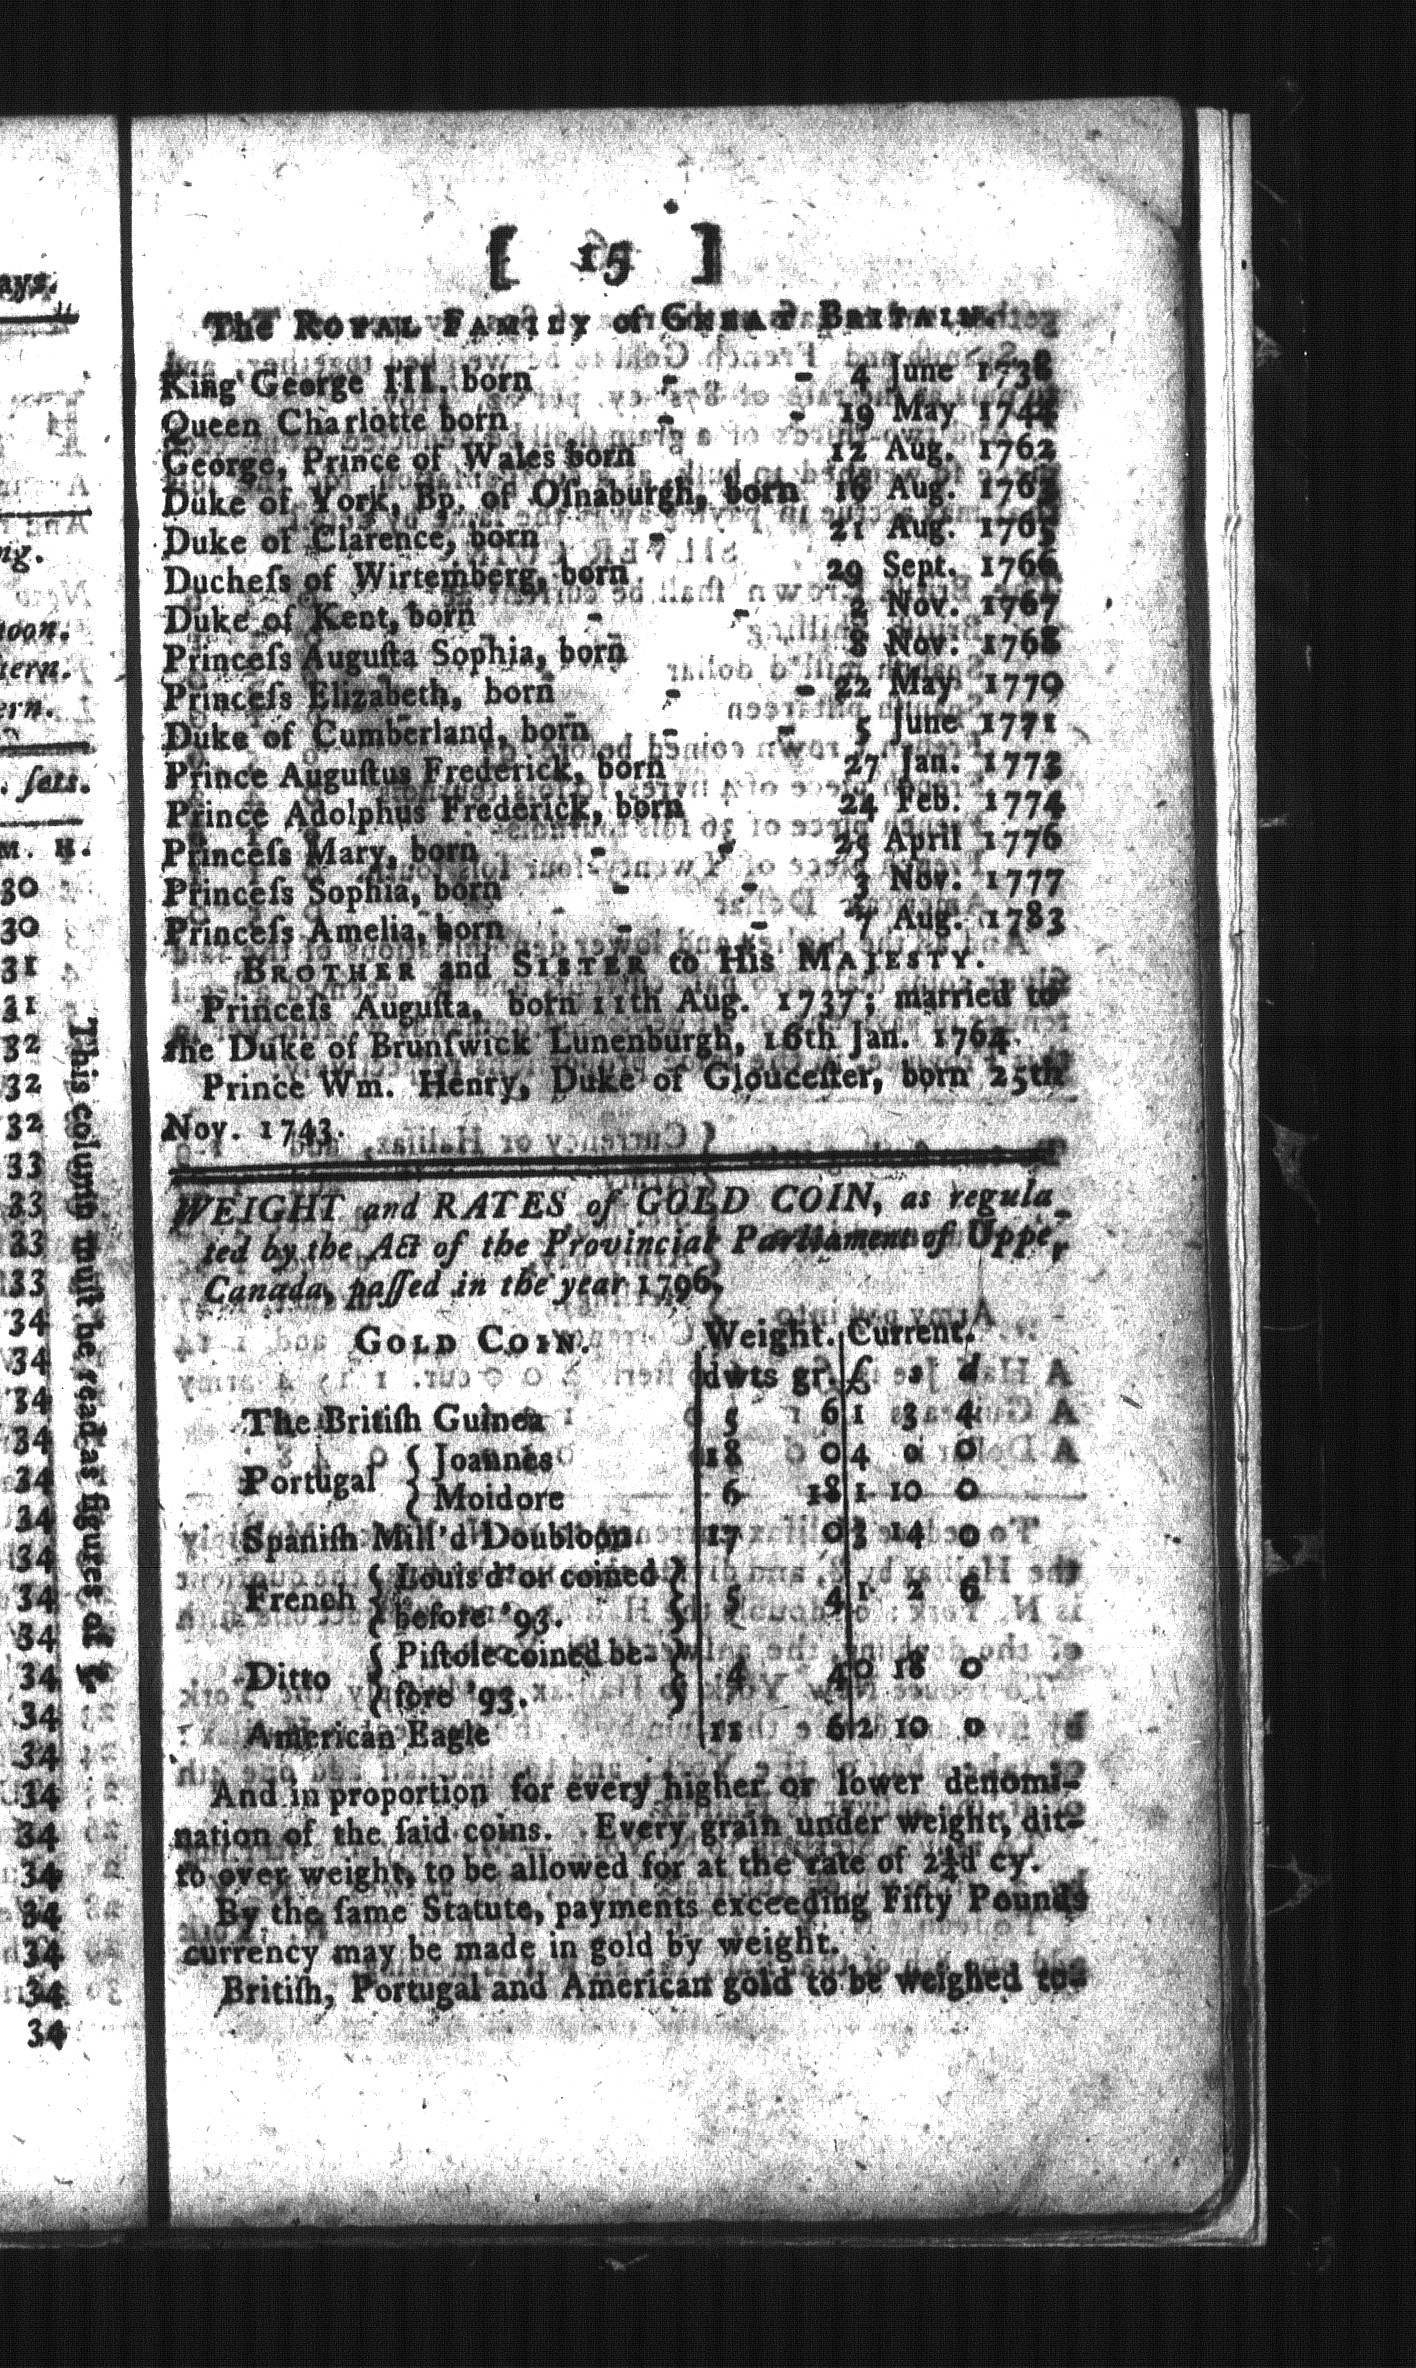 [ 15 ]
The ROYAL FAMILY of GREAT BRITAIN.
King George III. born - - 4 June 1738
Queen Charlotte born - - 19 May 1744
George, Prince of Wales born 12 Aug. 1762
Duke of York, Bp. of Oſnaburgh, born 16 Aug. 1763
Duke of Clarence, born - 21 Aug. 1765
Ducheſs of Wirtemberg, born 29 Sept. 1766
Duke of Kent, born - - 2 Nov. 1767
Princeſs Auguſta Sophia, born 8 Nov. 1768
Princeſs Elizabeth, born - - 22 May 1770
Duke of Cumberland, born - - 5 June 1771
Prince Auguſtus Frederick, born 27 Jan. 1773
Prince Adolphus Frederick, born 24 Feb. 1774
Princeſs Mary, born - - 25 April 1776
Princeſs Sophia, born - - 3 Nov. 1777
Princeſs Amelia, born - - 7 Aug. 1783
BROTHER and SISTER to His MAJESTY.
Princeſs Auguſta, born 11th Aug. 1737; married to
the Duke of Brunſwick Lunenburgh, 16th Jan. 1764.
Prince Wm. Henry, Duke of Glouceſter, born 25th
Nov. 1743.
WEIGHT and RATES of GOLD COIN, as regula-
ted by the Act of the Provincial Parliament of Upper
Canada, paſſed in the year 1796.
GOLD COIN. Weight. Current.
dwts gr. £ s d
The Britiſh Guinea 5 6 1 3 4
Portugal { Joannes 18 0 4 0 0
{ Moidore 6 18 1 10 0
Spaniſh Mill'd Doubloon 17 0 3 14 0
French { Louis d'or coined } 5 4 1 2 6
{ before '93. }
Ditto { Piſtole coined be- } 4 4 0 18 0
{ fore '93. }
American Eagle 11 6 2 10 0
And in proportion for every higher or lower denomi-
nation of the ſaid coins. Every grain under weight, dit-
to over weight, to be allowed for at the rate of 2¼d cy.
By the ſame Statute, payments exceeding Fifty Pounds
currency may be made in gold by weight.
Britiſh, Portugal and American gold to be weighed to-
ays.
ng.
noon.
tern.
ern.
. ſets.
M. H.
30
30
31
31
32
32
32
33
33
33
33
34
34
34
34
34
34
34
34
34
34
34
34
34
34
34
34
34
34
34
This column must be read as figures of